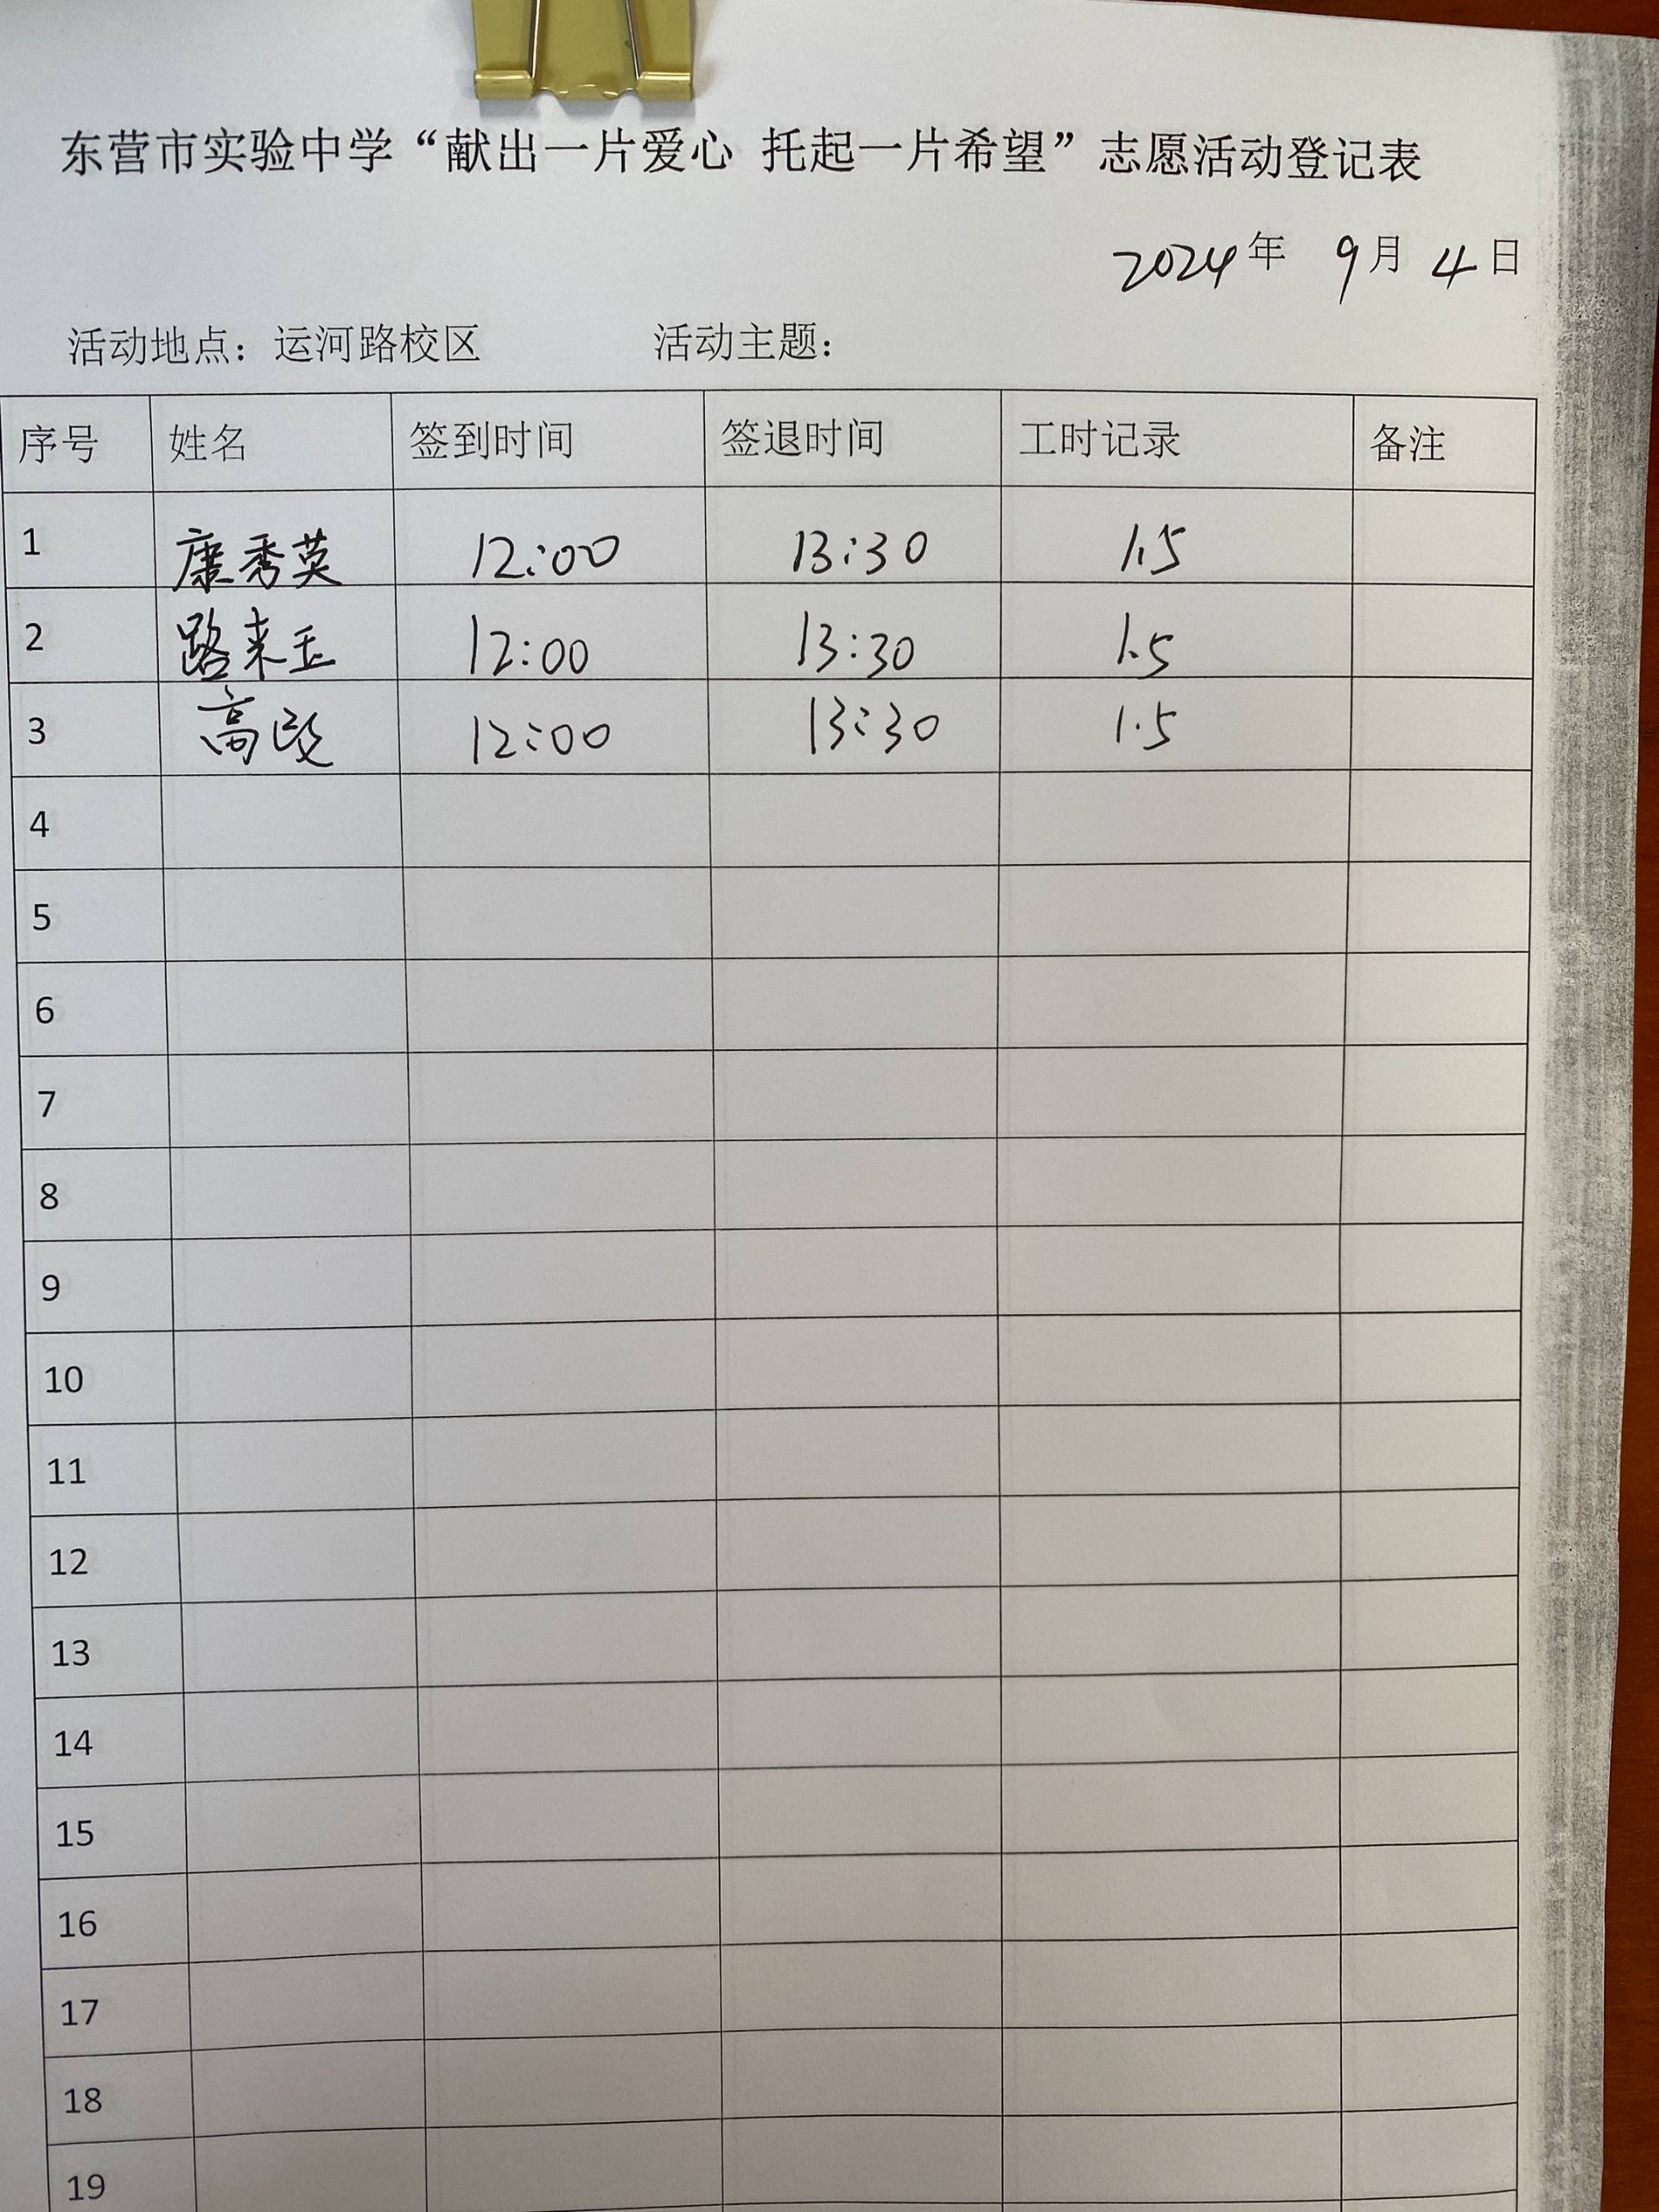 东营市实验中学“献出一片爱心 托起一片希望”志愿活动登记表
2024年 9月 4日
活动地点：运河路校区 活动主题：
序号 姓名 签到时间 签退时间 工时记录 备注
1 康秀英 12:00 13:30 1.5
2 路来玉 12:00 13:30 1.5
3 高 12:00 13:30 1.5
4
5
6
7
8
9
10
11
12
13
14
15
16
17
18
19